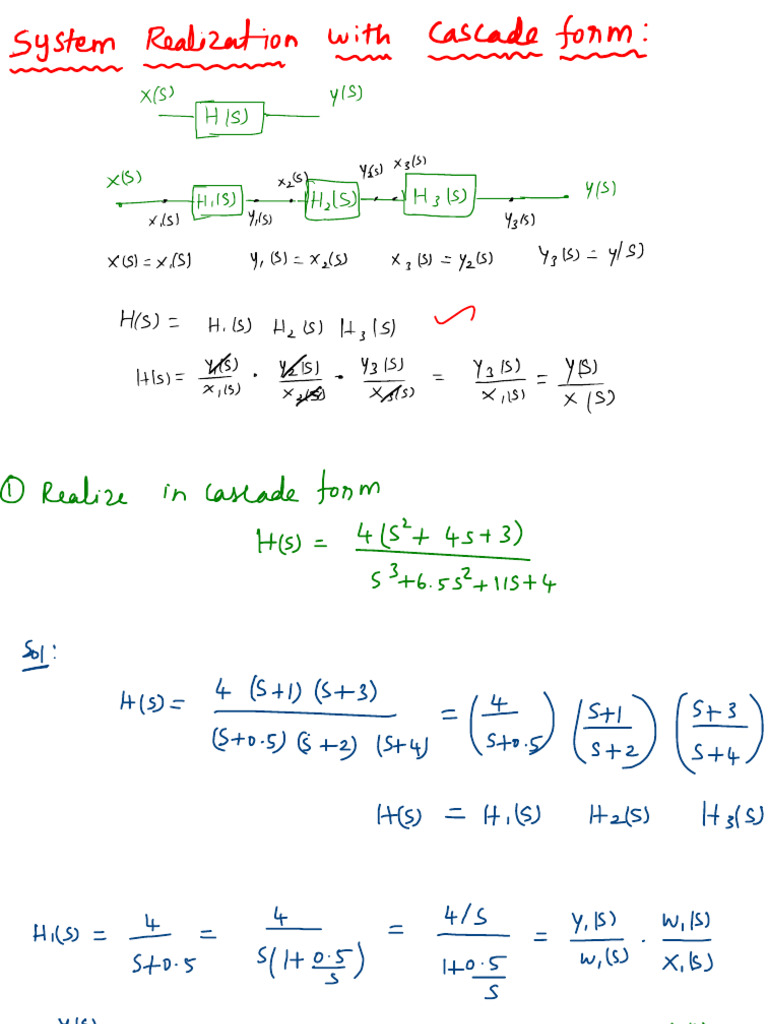 System Realization with Cascade form:
X(S) H(S) Y(S)
X(S) x₁(S) H₁(S) Y₁(S) x₂(S) H₂(S) Y₂(S) x₃(S) H₃(S) Y₃(S) Y(S)
X(S) = x₁(S) Y₁(S) = x₂(S) x₃(S) = Y₂(S) Y₃(S) = Y(S)
H(S) = H₁(S) H₂(S) H₃(S) ✓
H(S) = Y₁(S)/x₁(S) · Y₂(S)/x₂(S) · Y₃(S)/x₃(S) = Y₃(S)/x₁(S) = Y(S)/X(S)
① Realize in cascade form
H(S) = 4(S²+4S+3)/(S³+6.5S²+11S+4)
Sol:
H(S) = 4 (S+1) (S+3)/((S+0.5) (S+2) (S+4)) = (4/(S+0.5)) ((S+1)/(S+2)) ((S+3)/(S+4))
H(S) = H₁(S) H₂(S) H₃(S)
H₁(S) = 4/(S+0.5) = 4/(S(1+0.5/S)) = (4/S)/(1+0.5/S) = Y₁(S)/W₁(S) · W₁(S)/X₁(S)